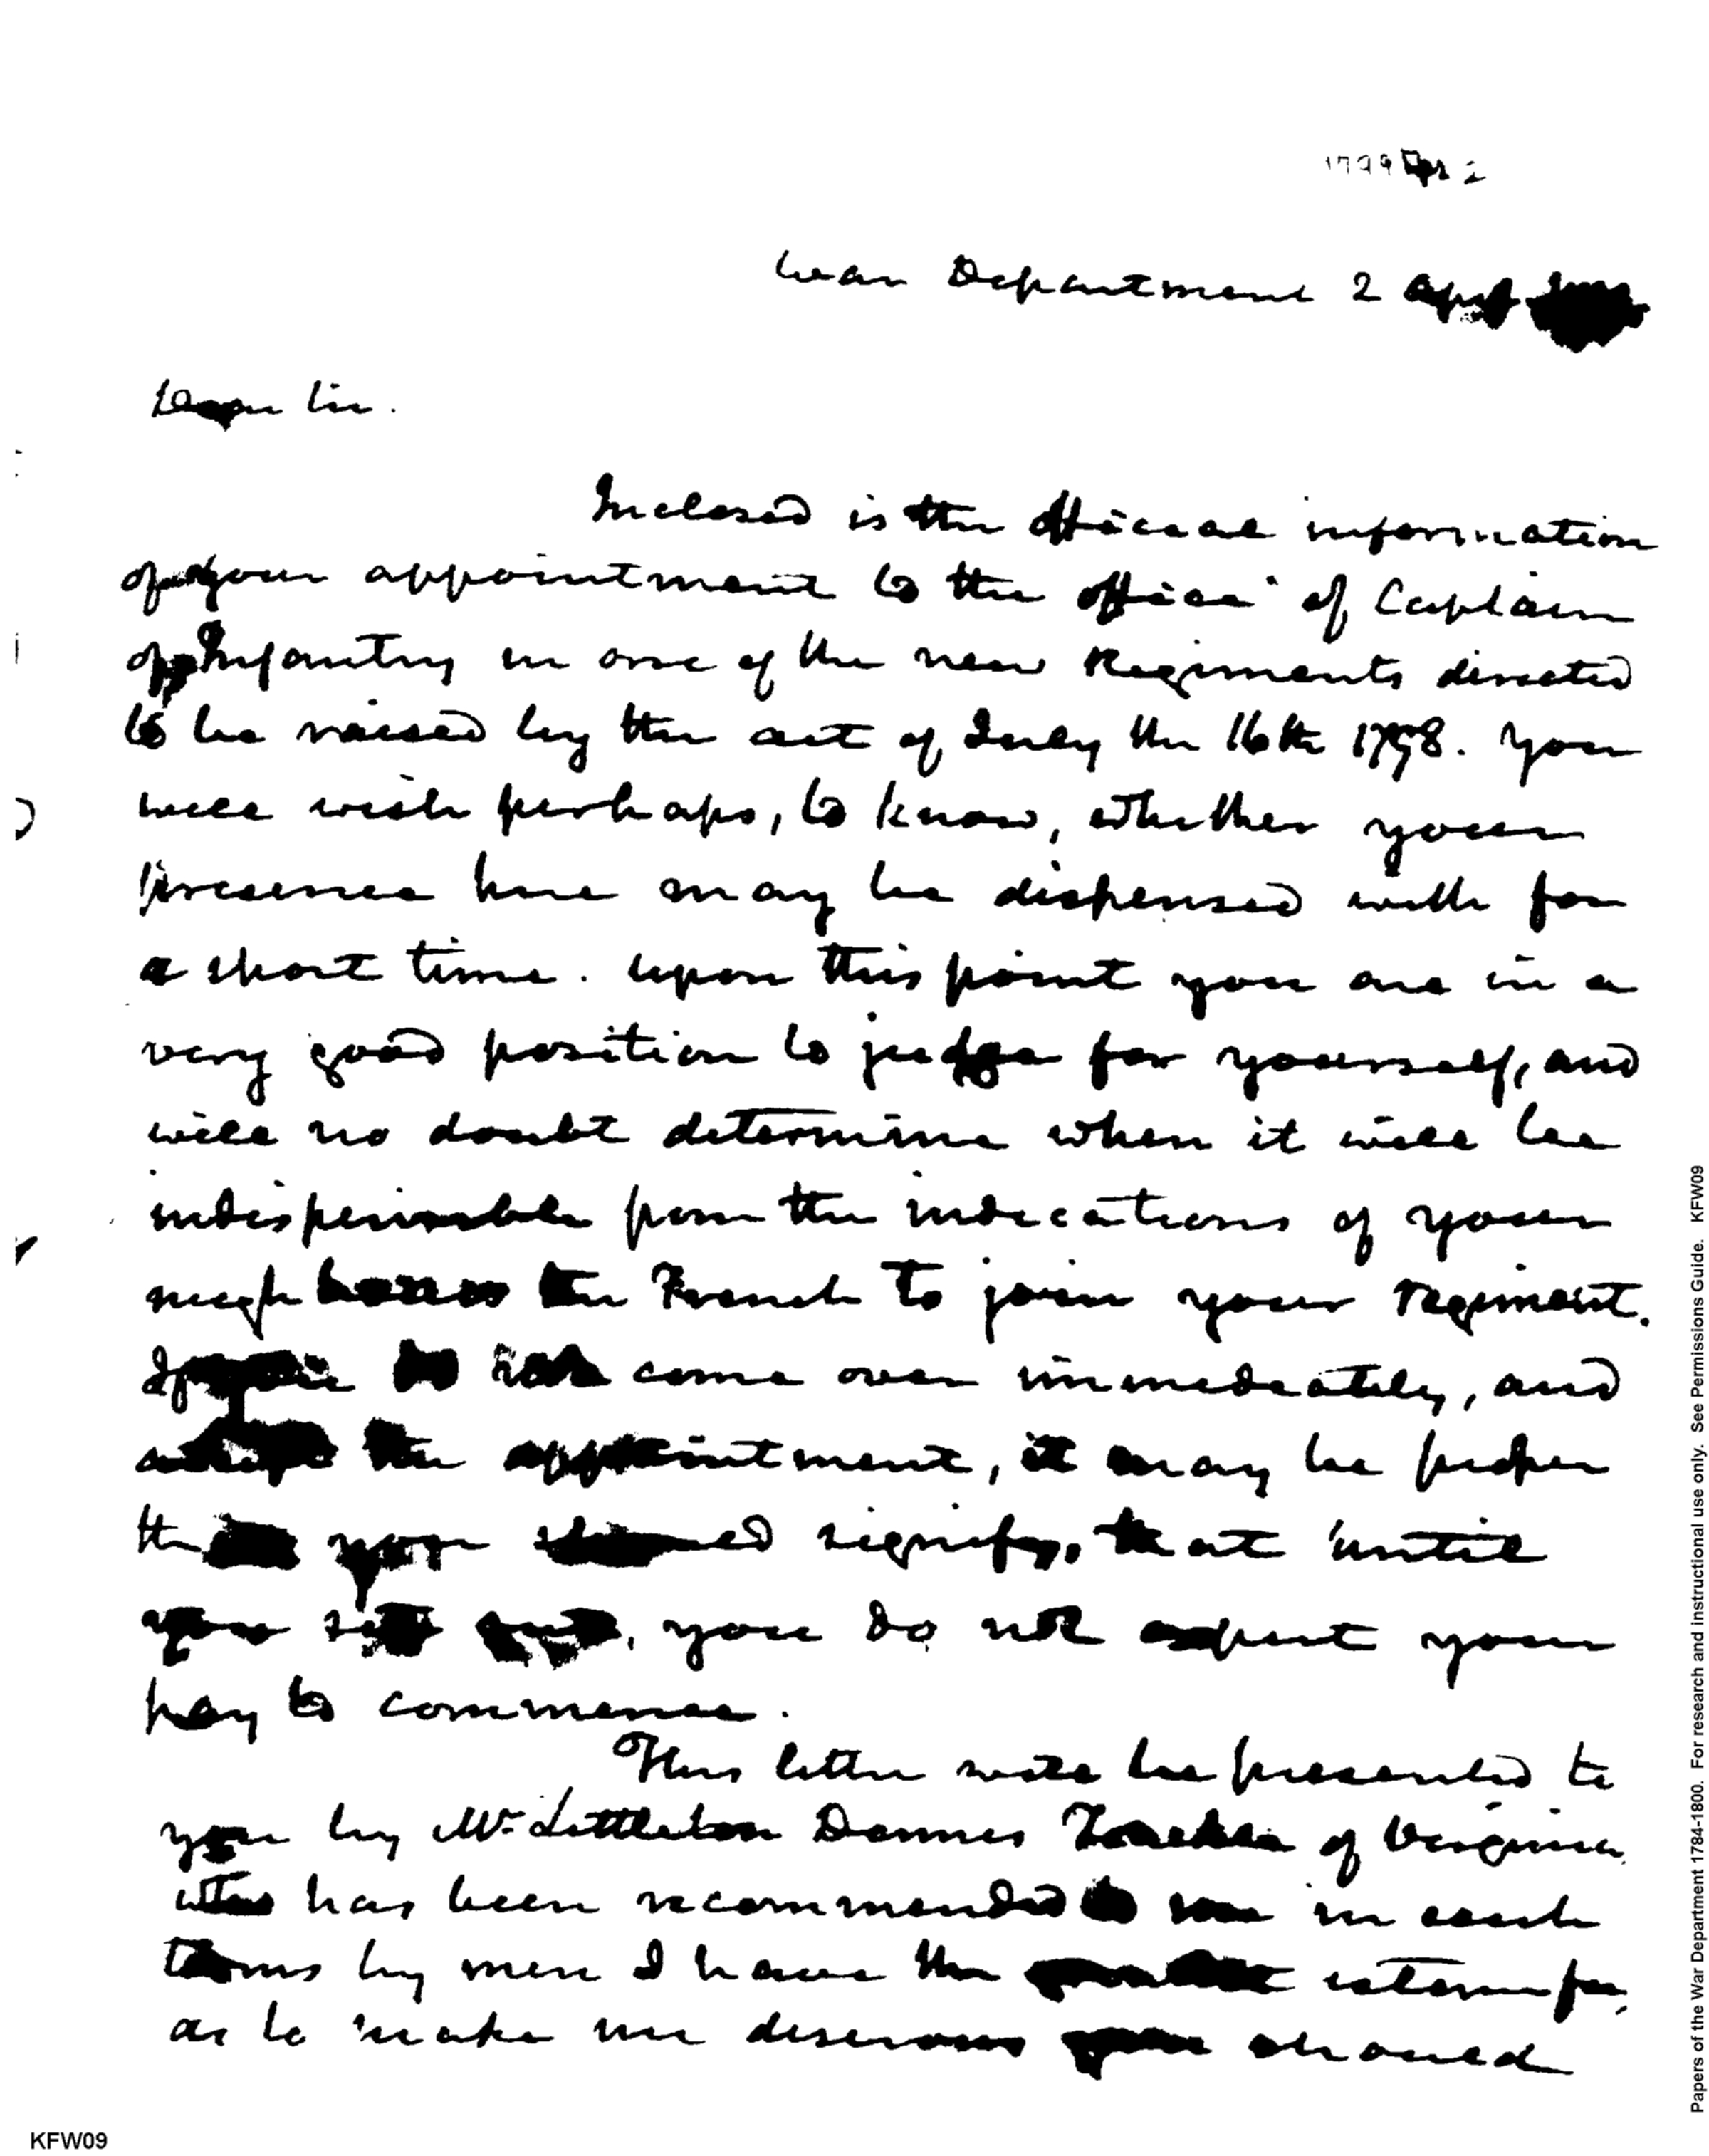 1799 Apr 2
War Department 2 April
Dear Sir.
Inclosed is the official information
of your appointment to the office of Captain
of Infantry in one of the new Regiments directed
to be raised by the act of July the 16th 1798. You
will wish perhaps, to know, whether your
presence here may be dispensed with for
a short time. Upon this point you are in a
very good position to judge for yourself, and
will no doubt determine when it will be
indispensable from the indications of your
neighbours the French to join your regiment.
If you do not come over immediately, and
accept the appointment, it may be proper
that you should signify, that until
you set out, you do not expect your
pay to commence.
This letter will be presented to
you by Mr. Littleton Dennis Teackle of Virginia
who has been recommended to me in such
terms by men I have the greatest esteem for,
as to make me desirous you should
KFW09
Papers of the War Department 1784-1800. For research and instructional use only. See Permissions Guide. KFW09